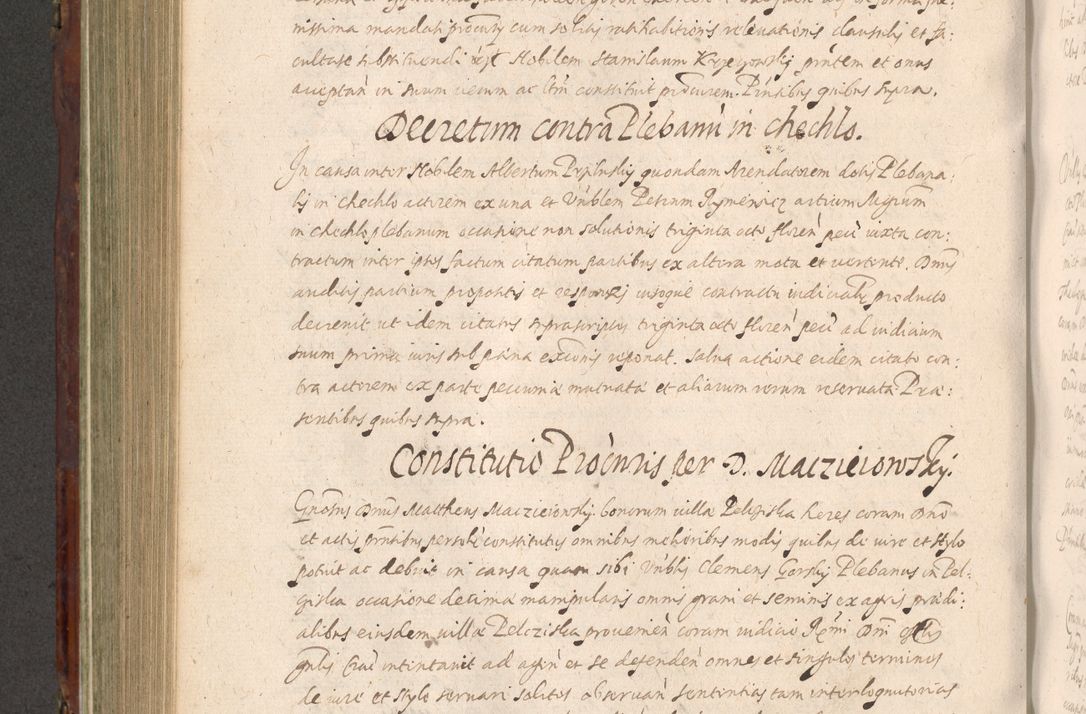 nissima mandati procūris cum solitis ratihabitionis relevationis clausulis et fa:
cultate substituendi ē/t Nobilem Stanislaum Krzeczowskij p̃ntem et onus
acceptan̄ in suum verum ac l̃tm constituit procūrem. P̃ntibus quibus supra.
Decretum contra Plebanū in Chechlo.
In causa inter Nobilem Albertum Przyluskij quondam Arendatorem dotis Plebana:
lis in Chechlo actorem ex una et Vn̄blem Petrum Rymenicz artium Mgrum
in Chechlo plebanum occasione non solutionis triginta octo floren̄ pecū iuxta con:
tractum inter ip̃os factum citatum partibus ex altera mota et vertente. Dñus
auditis partium propositis et responsis visoque contractu iudicialr̃ producto
decrevit ut idem citatus suprascriptus triginta octo floren̄ pecū ad iudicium
suum prima iuris sub pœna excōnis reponat. Salva actione eidem citato con:
tra actorem ex parte pecuniæ mutuatæ et aliarum rerum reservata Præ:
sentibus quibus supra.
Constitutio Procūris per D. Maczieiowskij.
Gñosus Dñus Matthæus Maczieiowskij bonorum villæ Pelcziska heres coram Dño
et actis p̃ntibus personłr constitutus omnibus melioribus modis quibus de iure et stylo
potuit ac debuit in causa quam sibi Vn̄blis Clemens Gorskij Plebanus in Pel:
cziska occasione decimæ manipularis omnis grani et seminis ex agris prædi:
alibus eiusdem villæ Pelcziska provenien̄ coram iudicio R̃mi Dñi
gñlis Crac̄ intentavit ad agen̄ et se defenden̄ omnes et singulos terminos
de iure et stylo servari solitos observan̄ sententias tam interloquutorias